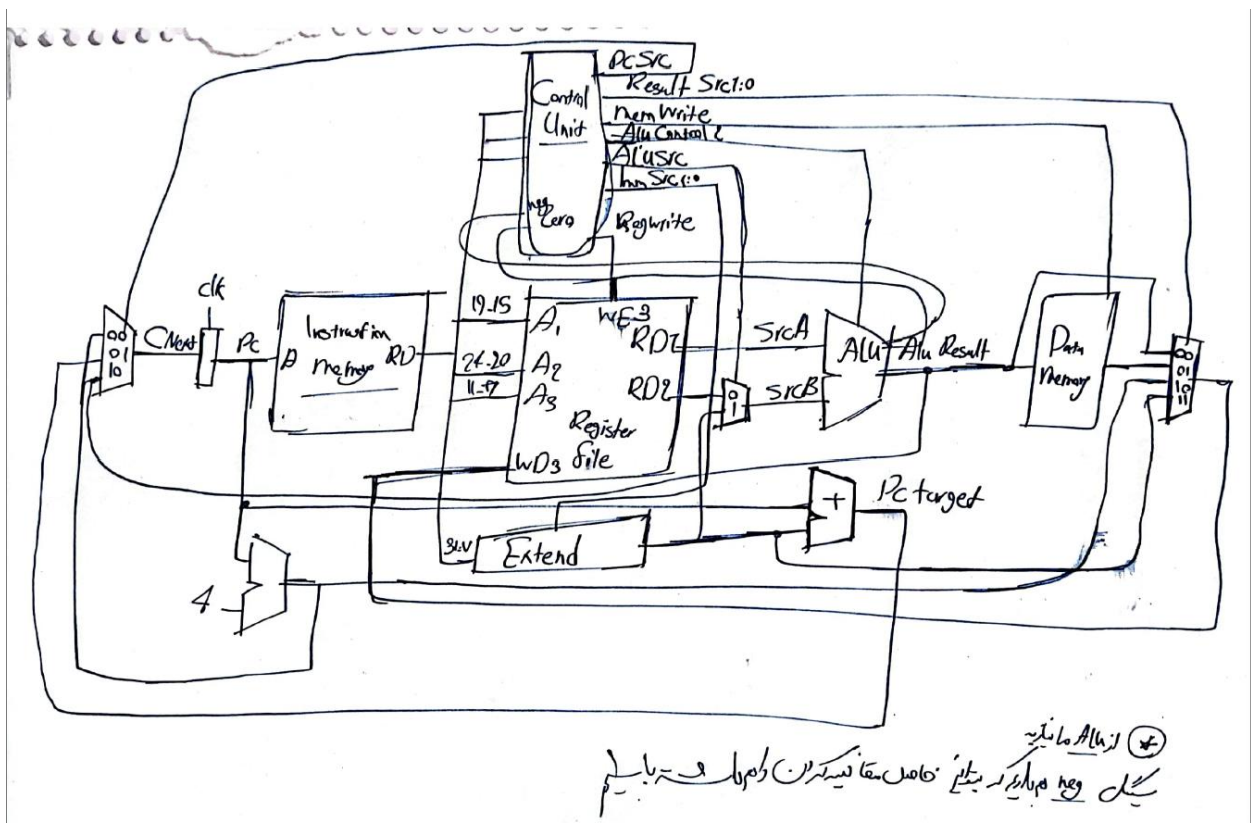 PcSrc
Result Src1:0
MemWrite
Alu Control 2
AluSrc
ImmSrc1:0
Regwrite
Control
Unit
neg
Zero
clk
00
01
10
CNext
Pc
A
Instruction
memory
RD
19-15
24-20
11-7
A1
A2
A3
WE3
RD1
RD2
Register
file
WD3
0
1
SrcA
SrcB
ALU
Alu Result
Data
Memory
00
01
10
11
Extend
+
Pc target
4
* از Alu ما نیاز به
سیگنال neg هم داریم که بتوانیم حاصل مقایسه کردن را هم داشته باشیم